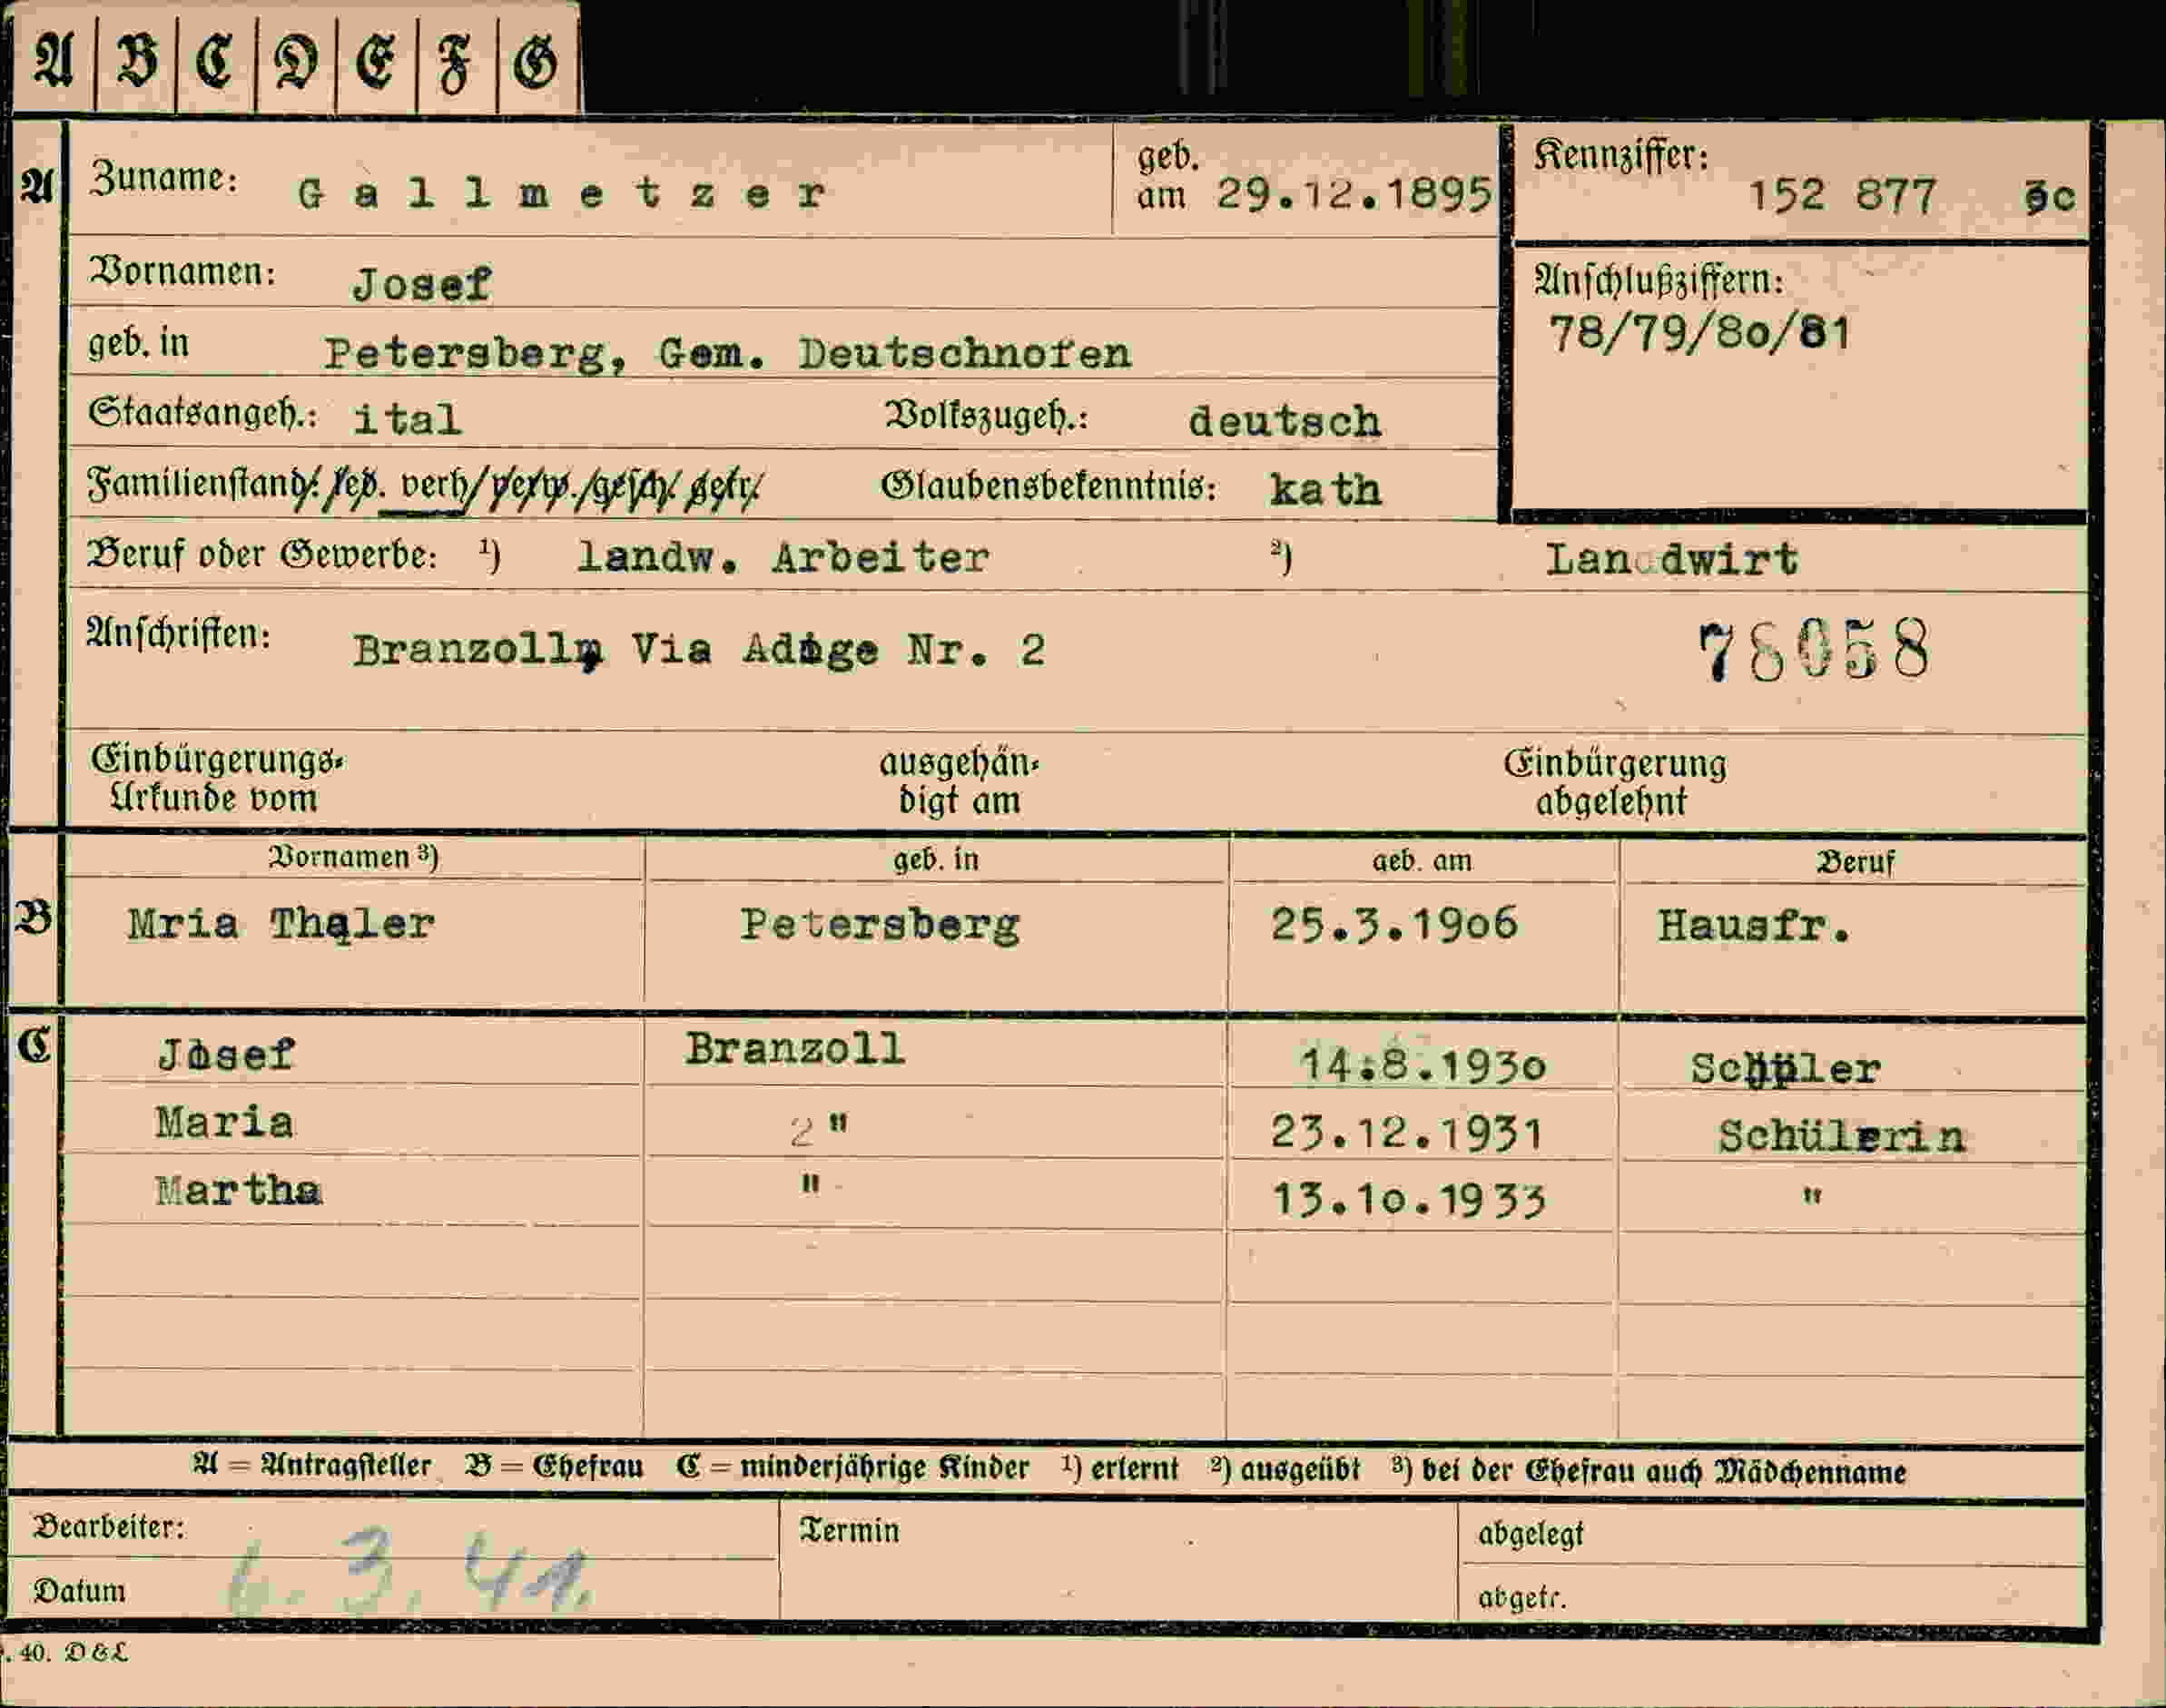 A B C D E F G
A Zuname: Gallmetzer geb. am 29.12.1895 Kennziffer: 152 877 3c
Vornamen: Josef Anschlußziffern:
78/79/80/81
geb. in Petersberg, Gem. Deutschnofen
Staatsangeh.: ital Volkszugeh.: deutsch
Familienstand: led. verh/verw./gesch/ getr. Glaubensbekenntnis: kath
Beruf oder Gewerbe: ¹) landw. Arbeiter ²) Landwirt
Anschriften: Branzoll, Via Adige Nr. 2 78058
Einbürgerungs- ausgehän- Einbürgerung
Urkunde vom digt am abgelehnt
Vornamen ³) geb. in geb. am Beruf
B Mria Thaler Petersberg 25.3.1906 Hausfr.
C Josef Branzoll 14.8.1930 Schüler
Maria 2 " 23.12.1931 Schülerin
Martha " 13.10.1933 "
A = Antragsteller B = Ehefrau C = minderjährige Kinder ¹) erlernt ²) ausgeübt ³) bei der Ehefrau auch Mädchenname
Bearbeiter: Termin abgelegt
Datum 6.3.41. abgetr.
. 40. D & L